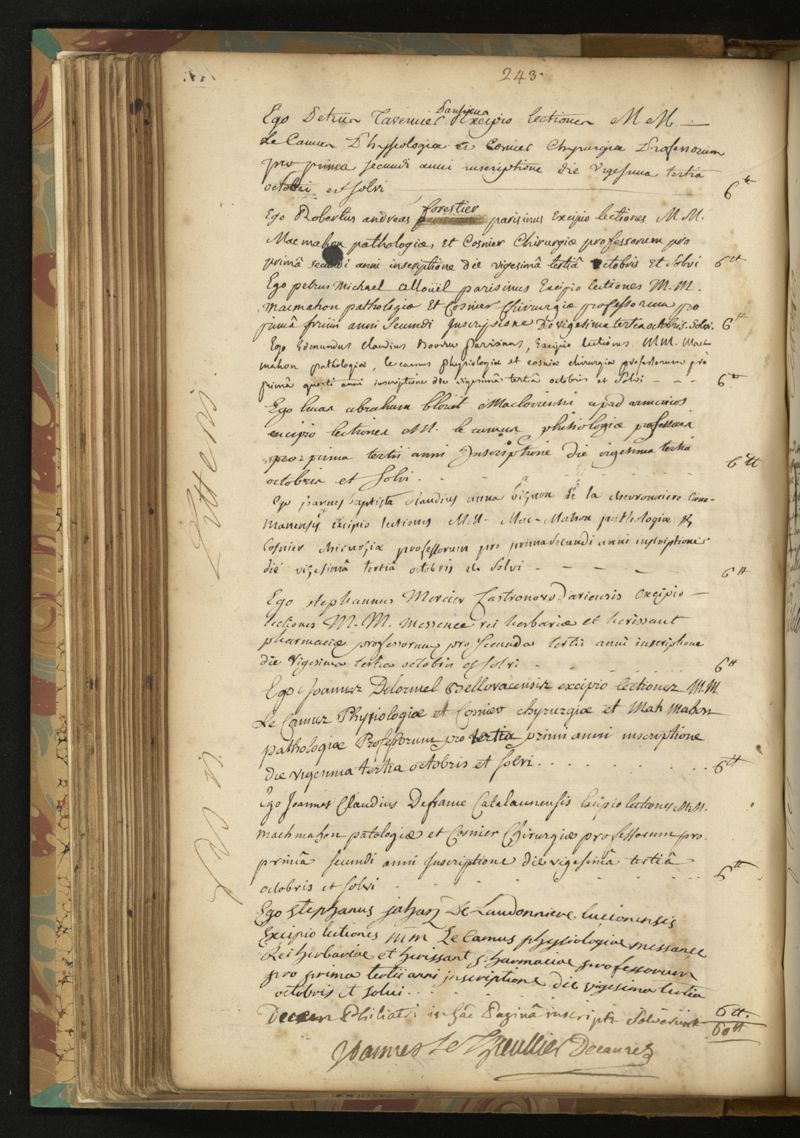 243.
Ego Petrus Tavernier Parisinus Excipio lectiones M M
Le Camus Physiologiæ et Cosnier Chyrurgiæ Professorum
pro prima secundi anni inscriptione die vigesima tertia
octobris et solvi
6tt
Ego Robertus andreas forestier parisinus Excipio lectiones M M.
Macmahon pathologiæ, et Cosnier Chirurgiæ professorum pro
primâ secundi anni inscriptione die vigesimâ tertiâ octobris et solvi
6tt
Ego petrus Michael parisinus Excipio lectiones M. M.
macmahon pathologiæ et Cosnier Chirurgiæ professorum pro
anni secundi Inscriptione die vigesima tertia octobris solvi.
6tt
Ego Edmundus Claudius parisinus, Excipio lectiones MM. Mac-
mahon pathologiæ, le camus physiologiæ et cosnier chirurgiæ professorum pro
primâ anni inscriptione die tertiâ octobris et solvi
6tt
Ego lucas abraham Maclovieusis apud armoricos
excipio lectiones M. le camus phisiologiæ professoris
pro prima tertii anni Inscriptione die vigesima tertia
octobris et solvi.
6tt
Ego joannes baptista claudius anna de la Ceno-
manensis excipio lectiones M.M. Mac-Mahon pathologiæ &
Cosnier chirurgiæ professorum pro prima secundi anni inscriptione
die vigesimâ tertiâ octobris et solvi
6tt
Ego stephannus Mercier Castronovodariensis excipio
lectiones M. M. messence rei herbariæ et herissant
pharmaciæ professorum pro secunda tertii anni inscriptione
die vigesima tertia octobris et solvi
6tt
Ego Joannes Delozmel Bellovacensis excipio lectiones M.M.
Le Camus Physiologiæ et Cosnier chyrurgiæ et Mah Mahon
pathologiæ Professorum pro tertia primi anni inscriptione
die vigesima tertia octobris et solvi.
6tt
Ego Joannes Claudius Defrance Catalaunensis Excipio lectiones M.M.
machmahon patologiæ et Cosnier Chirurgiæ professorum pro
primâ secundi anni Inscriptione die vigesimâ tertiâ
octobris et solvi
6tt
Ego stephanus De Laudonniere lucionensis
Excipio lectiones mm Le Camus physiologiæ messence
Rei herbariæ et herissant pharmaciæ professorum
pro prima tertii anni inscriptione die vigesima tertia
octobris et solvi.
6tt.
Decem Philiatri in hâc Paginâ inscripti solverunt
60tt
Joannes Le Thieullier Decanus